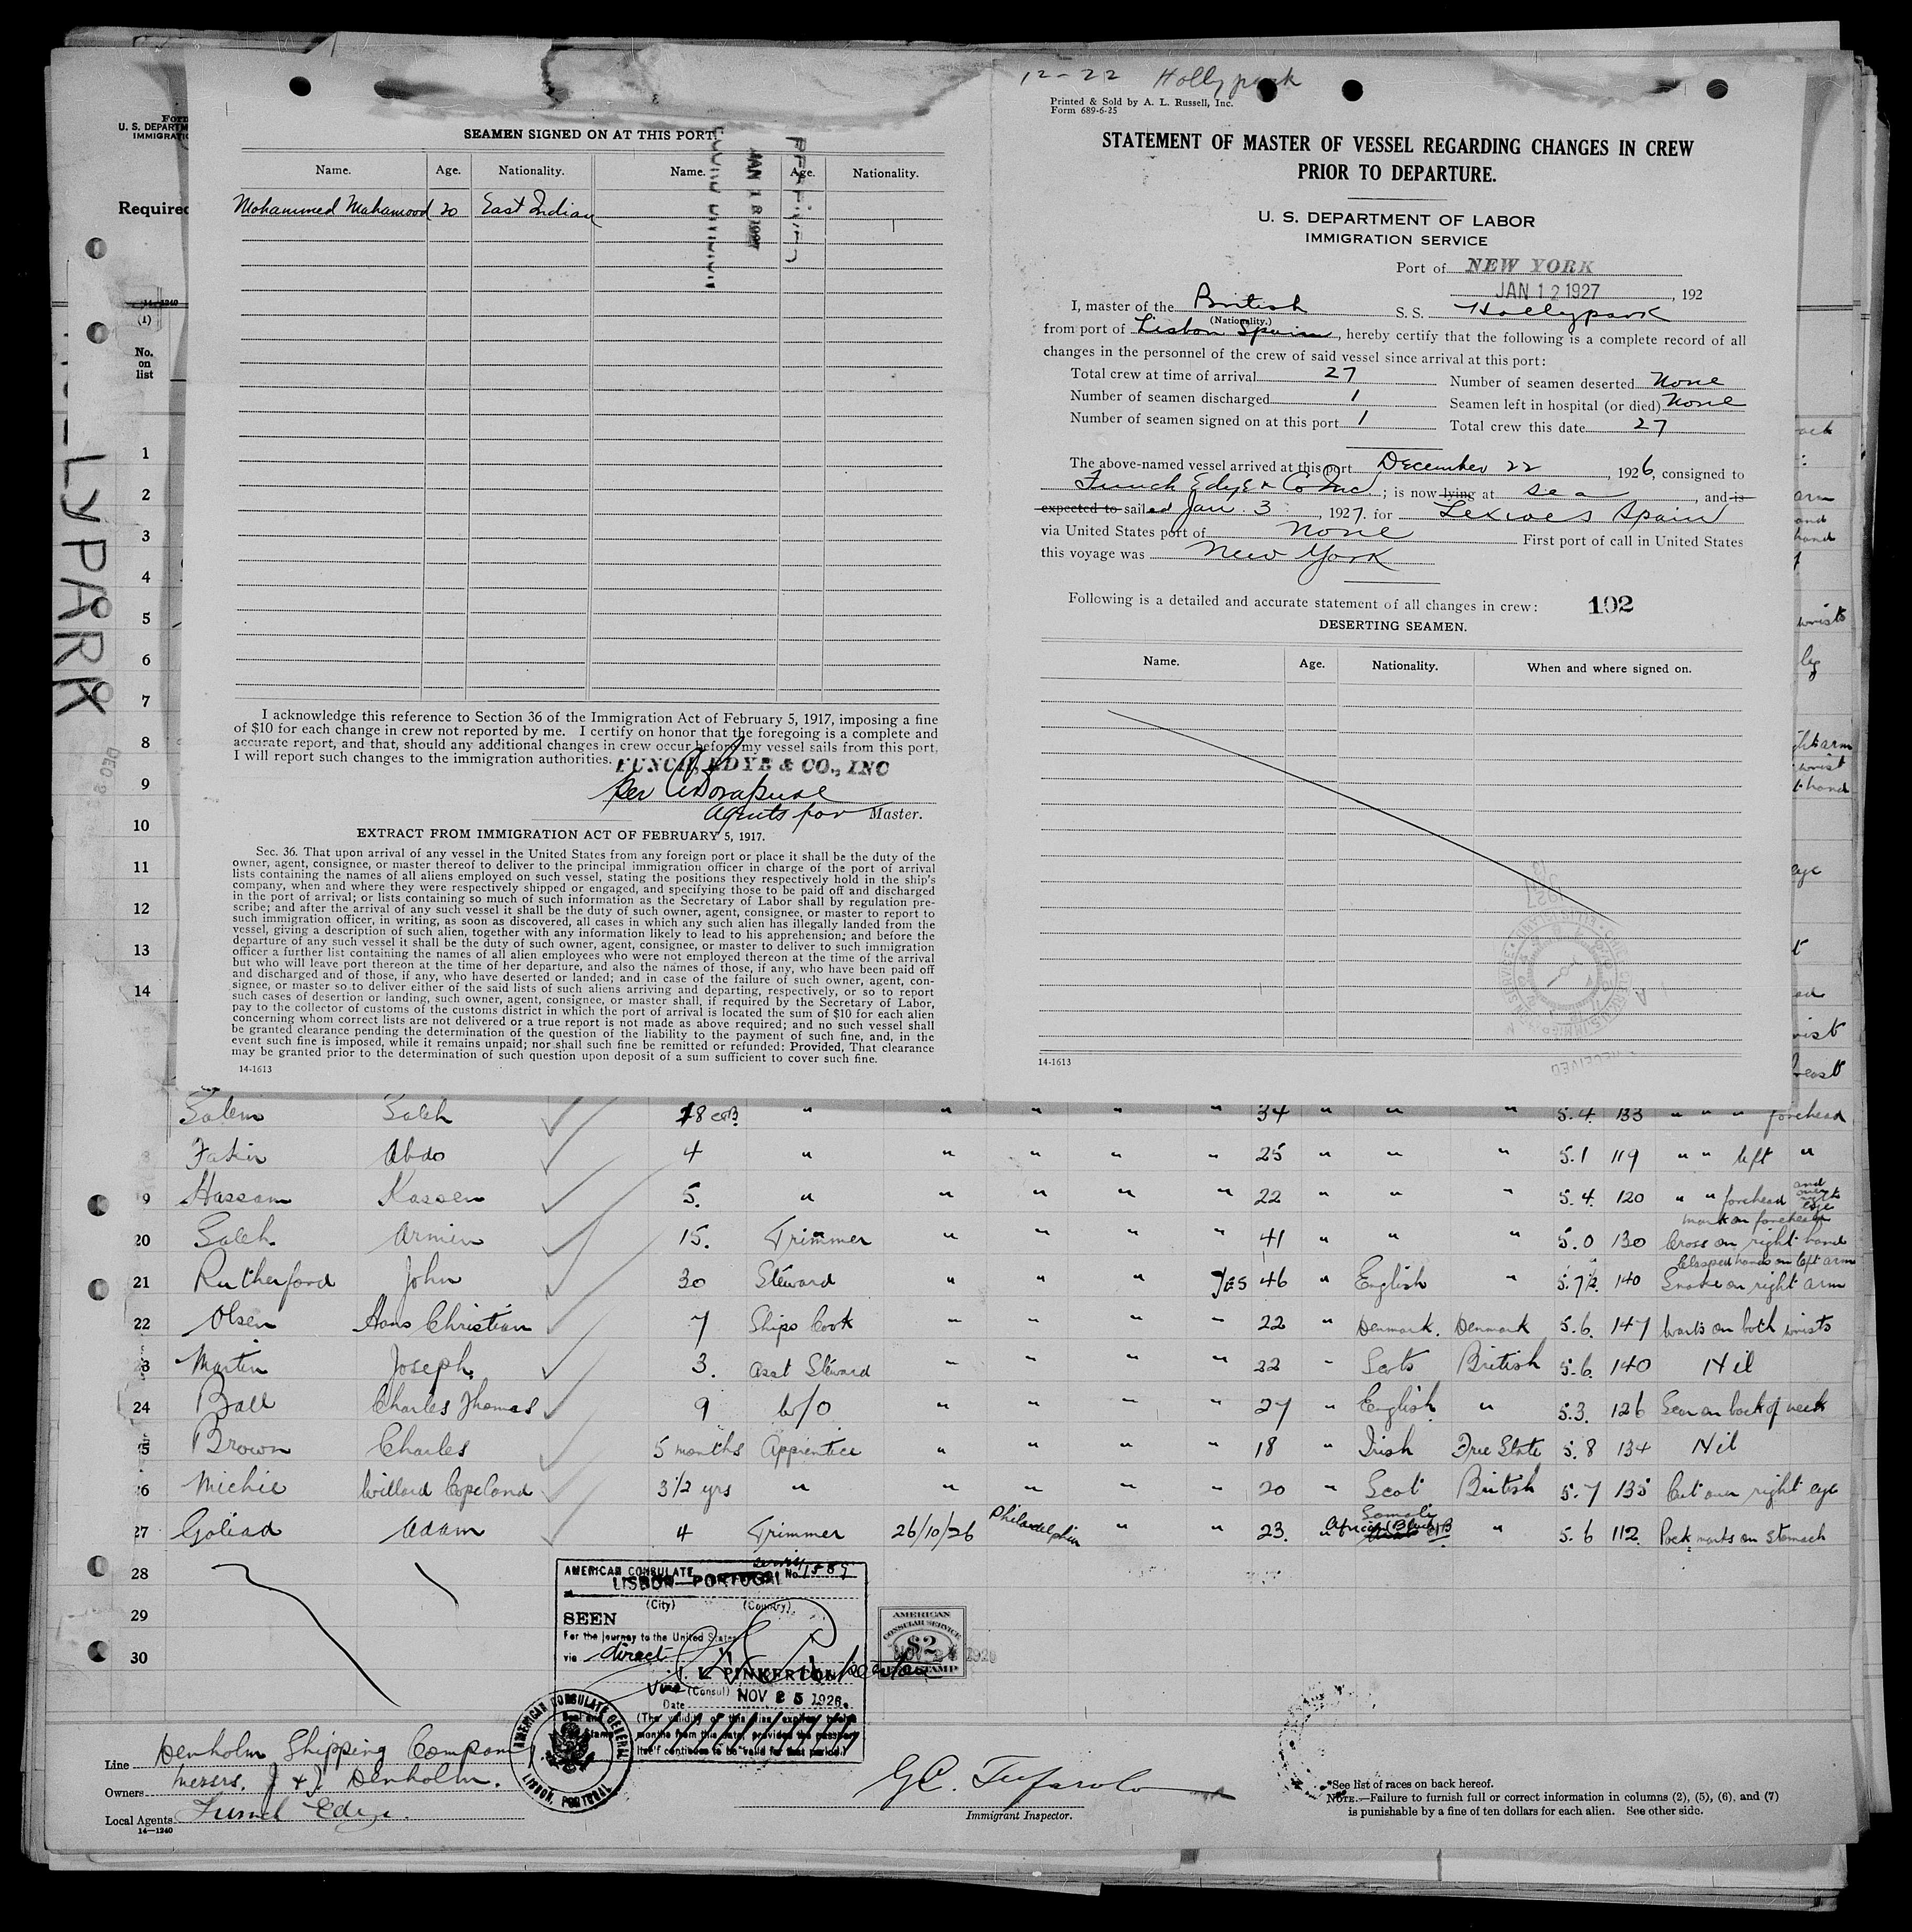 12-22 Hollypark
Printed & Sold by A. L. Russell, Inc.
Form 689-6-25
STATEMENT OF MASTER OF VESSEL REGARDING CHANGES IN CREW
PRIOR TO DEPARTURE.
U. S. DEPARTMENT OF LABOR
IMMIGRATION SERVICE
Port of NEW YORK
JAN 12 1927, 192
I, master of the British S. S. Hollypark
(Nationality.)
from port of Lisbon Spain, hereby certify that the following is a complete record of all
changes in the personnel of the crew of said vessel since arrival at this port:
Total crew at time of arrival 27 Number of seamen deserted None
Number of seamen discharged 1 Seamen left in hospital (or died) None
Number of seamen signed on at this port 1 Total crew this date 27
The above-named vessel arrived at this port December 22, 1926, consigned to
Funch Edye & Co Inc.; is now lying at sea, and is
expected to sailed Jan. 3, 1927. for Lexioes Spain
via United States port of None First port of call in United States
this voyage was New York
Following is a detailed and accurate statement of all changes in crew: 102
DESERTING SEAMEN.
Name. Age. Nationality. When and where signed on.
14-1613
SEAMEN SIGNED ON AT THIS PORT
Name. Age. Nationality. Name. Age. Nationality.
JAN 18 1927
Mohammed Mahamood 20 East Indian
I acknowledge this reference to Section 36 of the Immigration Act of February 5, 1917, imposing a fine
of $10 for each change in crew not reported by me. I certify on honor that the foregoing is a complete and
accurate report, and that, should any additional changes in crew occur before my vessel sails from this port,
I will report such changes to the immigration authorities.
FUNCH, EDYE & CO., INC
per
Agents for Master.
EXTRACT FROM IMMIGRATION ACT OF FEBRUARY 5, 1917.
Sec. 36. That upon arrival of any vessel in the United States from any foreign port or place it shall be the duty of the
owner, agent, consignee, or master thereof to deliver to the principal immigration officer in charge of the port of arrival
lists containing the names of all aliens employed on such vessel, stating the positions they respectively hold in the ship's
company, when and where they were respectively shipped or engaged, and specifying those to be paid off and discharged
in the port of arrival; or lists containing so much of such information as the Secretary of Labor shall by regulation pre-
scribe; and after the arrival of any such vessel it shall be the duty of such owner, agent, consignee, or master to report to
such immigration officer, in writing, as soon as discovered, all cases in which any such alien has illegally landed from the
vessel, giving a description of such alien, together with any information likely to lead to his apprehension; and before the
departure of any such vessel it shall be the duty of such owner, agent, consignee, or master to deliver to such immigration
officer a further list containing the names of all alien employees who were not employed thereon at the time of the arrival
but who will leave port thereon at the time of her departure, and also the names of those, if any, who have been paid off
and discharged and of those, if any, who have deserted or landed; and in case of the failure of such owner, agent, con-
signee, or master so to deliver either of the said lists of such aliens arriving and departing, respectively, or so to report
such cases of desertion or landing, such owner, agent, consignee, or master shall, if required by the Secretary of Labor,
pay to the collector of customs of the customs district in which the port of arrival is located the sum of $10 for each alien
concerning whom correct lists are not delivered or a true report is not made as above required; and no such vessel shall
be granted clearance pending the determination of the question of the liability to the payment of such fine, and, in the
event such fine is imposed, while it remains unpaid; nor shall such fine be remitted or refunded: Provided, That clearance
may be granted prior to the determination of such question upon deposit of a sum sufficient to cover such fine.
14-1613
Form
U. S. DEPARTM
IMMIGRATIO
Required
14-1240
(1)
No.
on
list
LYPARK
1
2
3
4
5
6
7
8
9
10
11
12
13
14
Salem Saleh 18 " " " " " 34 " " " 5.4. 133 " " " forehead
Fakir Abdo 4 " " " " " 25 " " " 5.1 119 " " left "
9 Hassam Kassem 5. " " " " " 22 " " " 5.4. 120 " " forehead
mark on forehead
20 Saleh Armin 15. Trimmer " " " " 41 " " " 5.0 130 Cross on right hand
Clasped hands on left arm
21 Rutherford John 30 Steward " " " Yes 46 " English " 5.7½. 140 Snake on right arm
22 Olsen Hans Christian 7 Ships Cook " " " " 22 " Denmark. Denmark 5.6. 147 Warts on both wrists
23 Martin Joseph. 3. Asst Steward " " " " 22 " Scots British 5.6. 140 Nil
24 Ball Charles Thomas 9 W/O " " " " 27 " English " 5.3. 126 Scar on back of neck
25 Brown Charles 5 months Apprentice " " " " 18 " Irish Free State 5.8 134 Nil
26 Michie Willard Copeland 3 1/2 yrs " " " " " 20 " Scot British 5.7 135 Cut over right eye
Somali
27 Goliad Adam 4 Trimmer 26/10/26 Philadelphia " " 23. " African (Black) " 5.6 112. Pock marks on stomach
28
29
30
AMERICAN CONSULATE No. 1889
LISBON—PORTUGAL
(City) (Country)
SEEN
For the journey to the United States
via direct
PINKERTON
Vice (Consul)
Date NOV 25 1926.
(The validity of this visa expires twelve
months from this date, provided the passport
itself continues to be valid for that period.)
AMERICAN CONSULATE GENERAL
LISBON, PORTUGAL
AMERICAN
CONSULAR SERVICE
$2
FEE STAMP
Line Denholm Shipping Company
Owners Messrs. J & J Denholm.
Local Agents Funch Edye.
14—1240
Immigrant Inspector.
*See list of races on back hereof.
NOTE.—Failure to furnish full or correct information in columns (2), (5), (6), and (7)
is punishable by a fine of ten dollars for each alien. See other side.